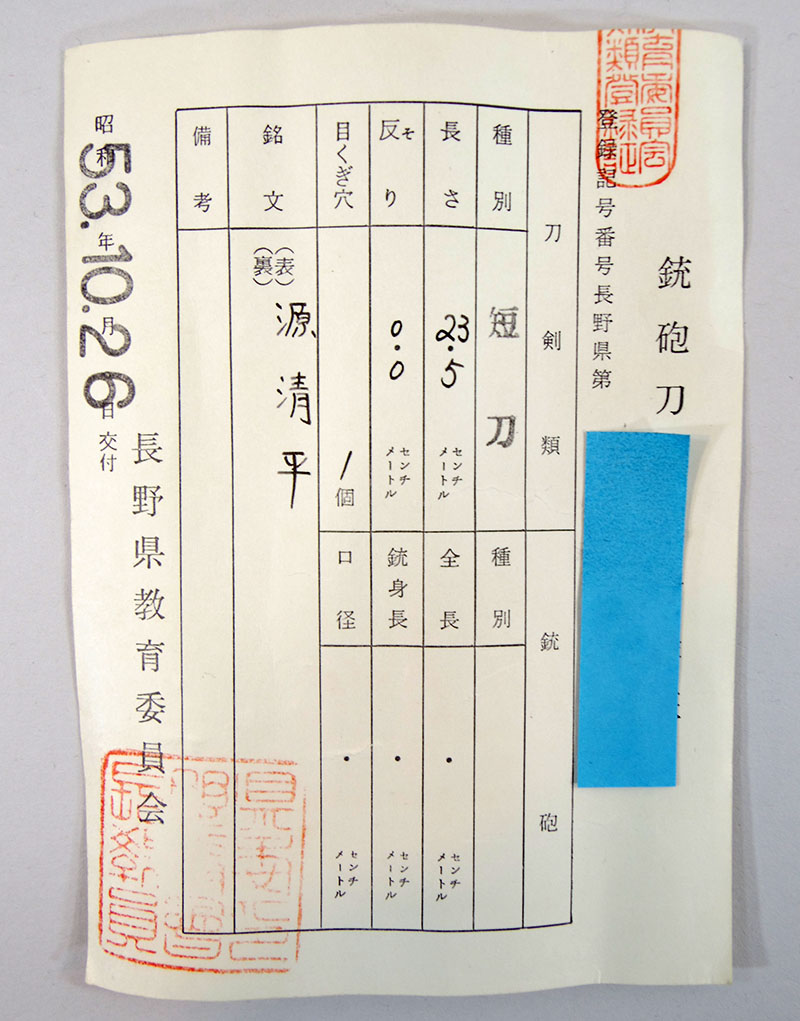 銃砲刀
登録記号番号長野県第
刀剣類
種別 短刀
長さ 23.5 センチメートル
反り そ 0.0 センチメートル
目くぎ穴 1個
銘文 (表) 源清平
(裏)
備考
銃砲
種別
全長 . センチメートル
銃身長 . センチメートル
口径 . センチメートル
昭和53年10月26日交付
長野県教育委員会